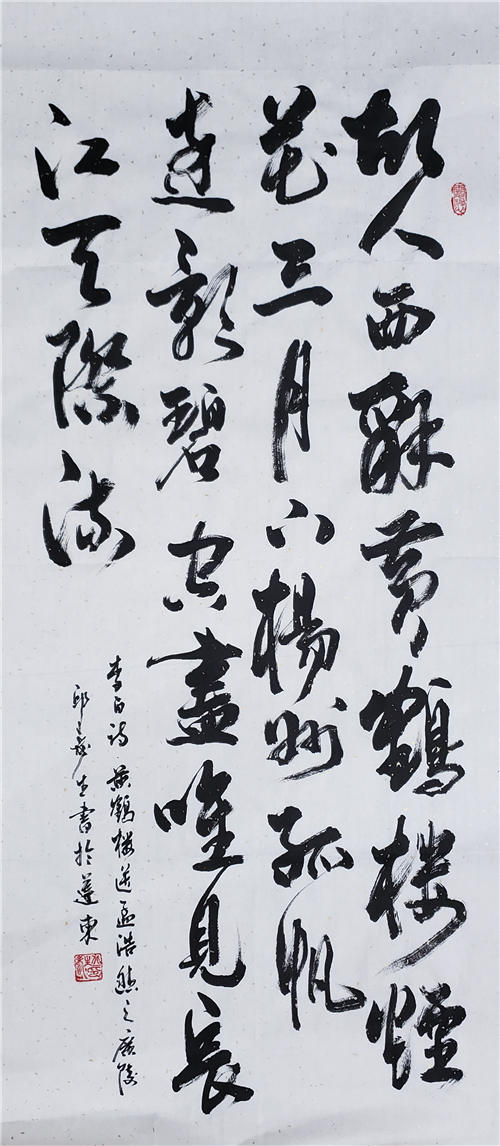 故人西辭黄鶴楼煙
花三月下楊州孤帆
遠影碧空盡唯見長
江天際流
李白詩 黄鶴楼送孟浩然之廣陵
邱生書於東